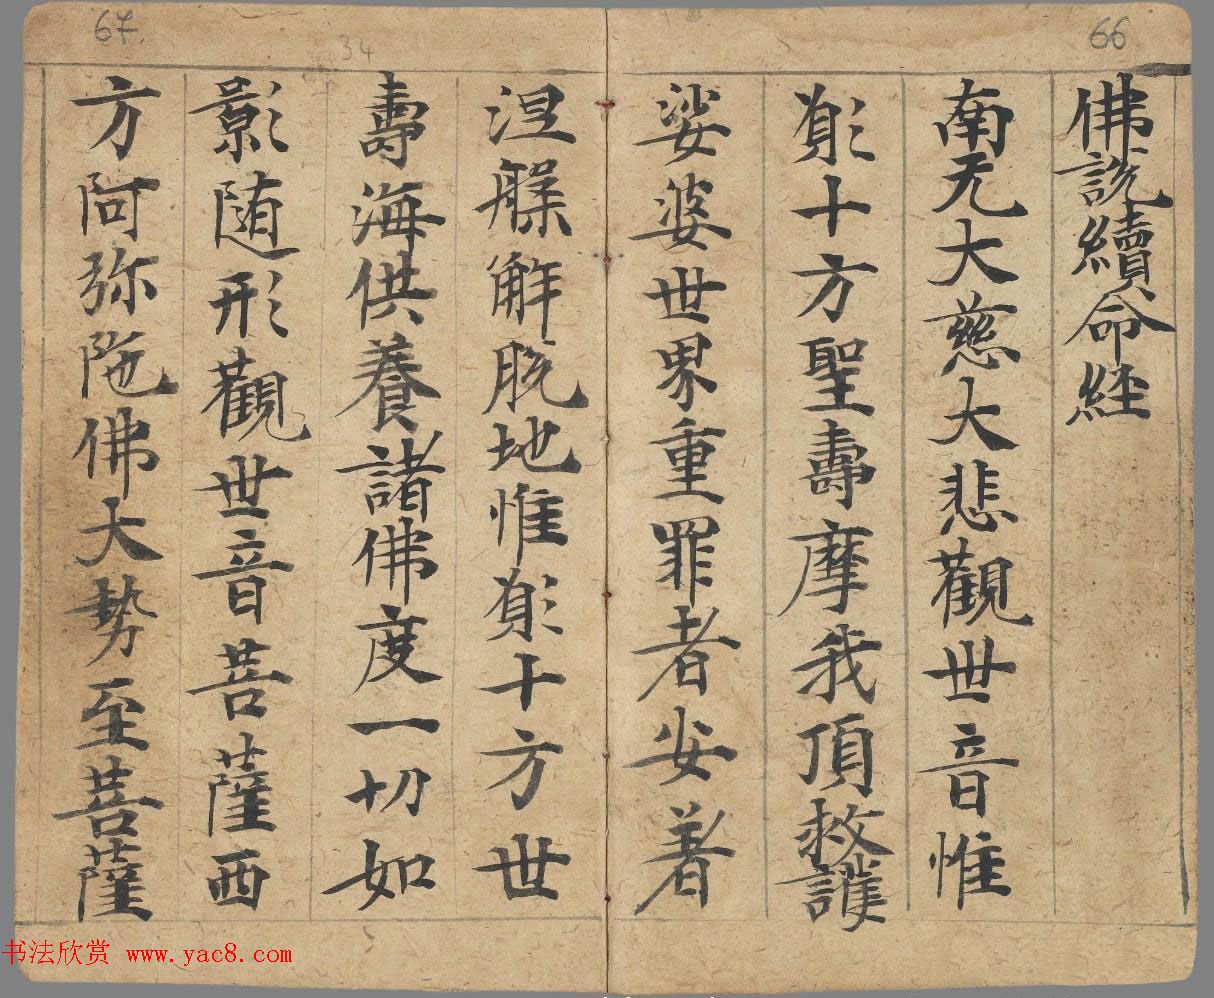 66
佛説續命経
南无大慈大悲觀世音惟
願十方聖壽摩我頂救護
娑婆世界重罪者安着
涅槃解脱地惟願十方世
壽海供養諸佛度一切如
影随形觀世音菩薩西
方阿弥陁佛大勢至菩薩
67
34
书法欣赏 www.yac8.com